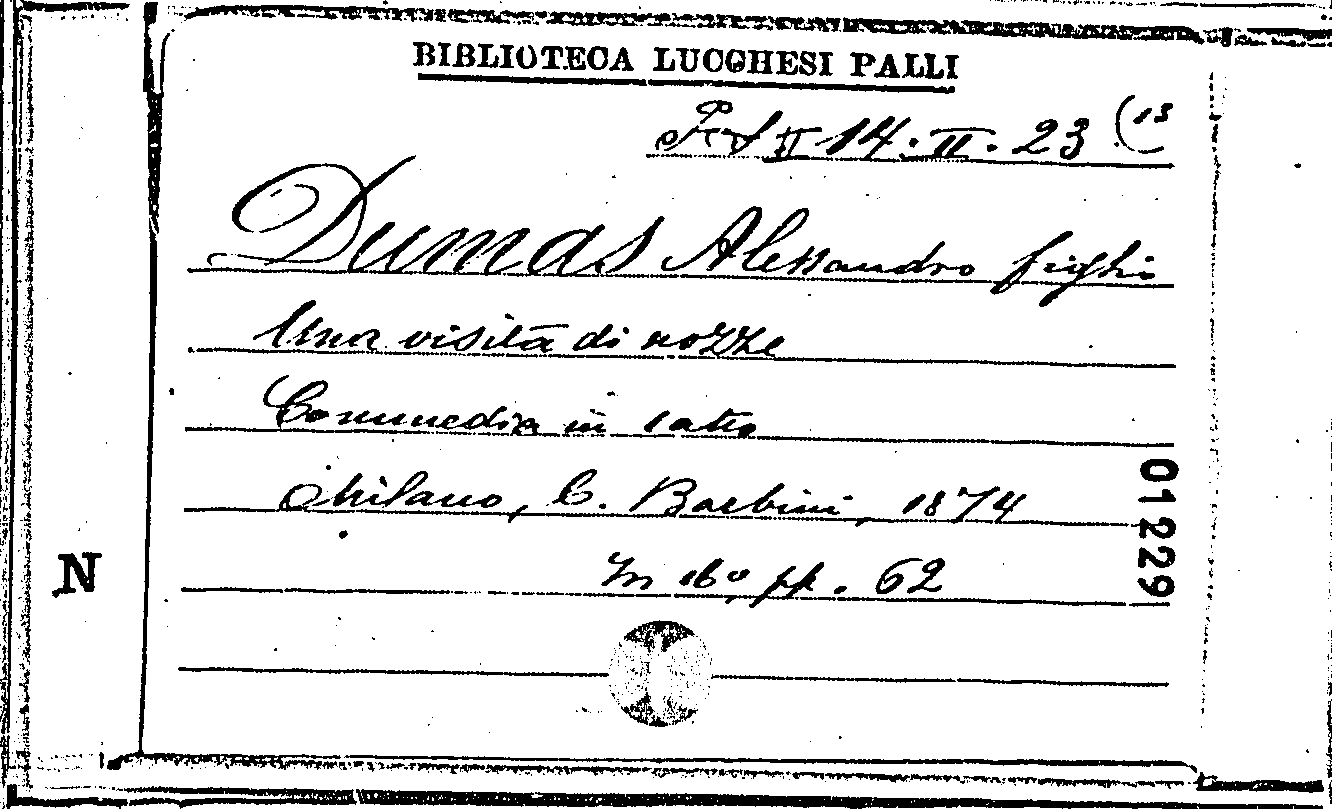 BIBLIOTECA LUCCHESI PALLI
II 14. II. 23 (13
Dumas Alessandro figlio
Una visita di nozze
Commedia in 1 atto
Milano, C. Barbini, 1874
In 16º, pp. 62
N
01229